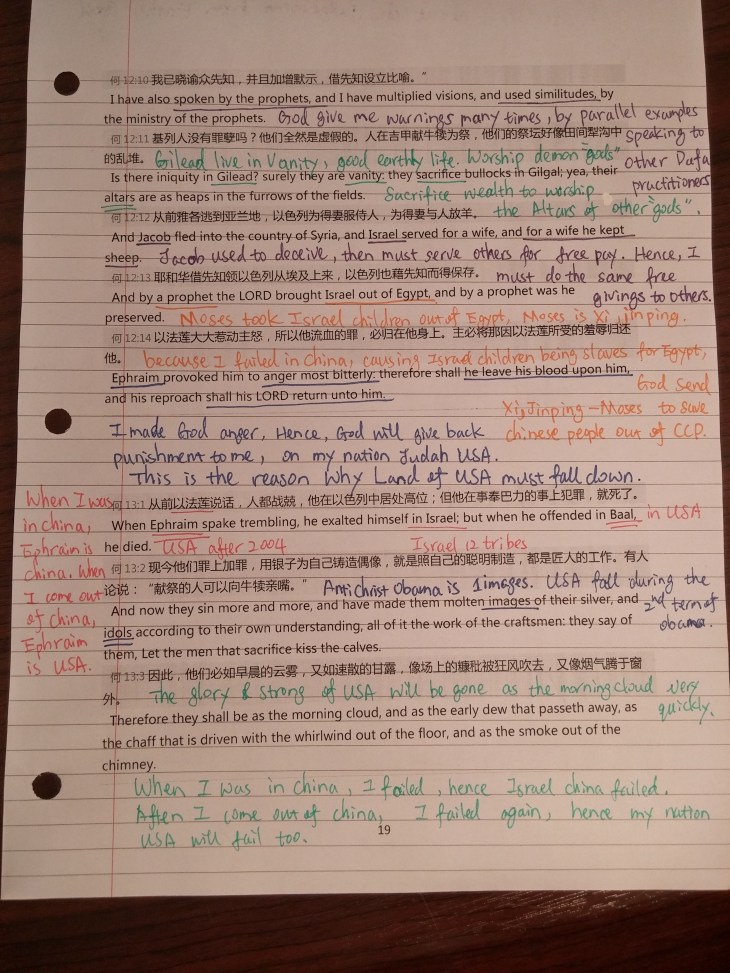 何 12:10 我已晓谕众先知，并且加增默示，借先知设立比喻。”
I have also spoken by the prophets, and I have multiplied visions, and used similitudes, by
the ministry of the prophets. God give me warnings many times, by parallel examples
何 12:11 基列人没有罪孽吗？他们全然是虚假的。人在吉甲献牛犊为祭，他们的祭坛好像田间犁沟中 speaking to
的乱堆。 Gilead live in Vanity, good earthly life. Worship demon "gods" other Dafa
Is there iniquity in Gilead? surely they are vanity: they sacrifice bullocks in Gilgal; yea, their practitioners
altars are as heaps in the furrows of the fields. Sacrifice wealth to worship
何 12:12 从前雅各逃到亚兰地，以色列为得妻服侍人，为得妻与人放羊。 the Altars of other "gods".
And Jacob fled into the country of Syria, and Israel served for a wife, and for a wife he kept
sheep. Jacob used to deceive, then must serve others for free pay. Hence, I
何 12:13 耶和华借先知领以色列从埃及上来，以色列也藉先知而得保存。 must do the same free
And by a prophet the LORD brought Israel out of Egypt, and by a prophet was he givings to others.
preserved. Moses took Israel children out of Egypt, Moses is Xi, jinping.
何 12:14 以法莲大大惹动主怒，所以他流血的罪，必归在他身上。主必将那因以法莲所受的羞辱归还
他。 because I failed in China, causing Israel children being slaves for Egypt,
Ephraim provoked him to anger most bitterly: therefore shall he leave his blood upon him, God send
and his reproach shall his LORD return unto him. Xi, Jinping—Moses to save
I made God anger, Hence, God will give back chinese people out of CCP.
punishment to me, on my nation Judah USA.
This is the reason Why Land of USA must fall down.
When I was 何 13:1 从前以法莲说话，人都战兢，他在以色列中居处高位；但他在事奉巴力的事上犯罪，就死了。
in china, When Ephraim spake trembling, he exalted himself in Israel; but when he offended in Baal, in USA
Ephraim is he died. USA after 2004 Israel 12 tribes
china. When 何 13:2 现今他们罪上加罪，用银子为自己铸造偶像，就是照自己的聪明制造，都是匠人的工作。有人
I come out 论说：“献祭的人可以向牛犊亲嘴。” Antichrist Obama is images. USA fall during the
of china, And now they sin more and more, and have made them molten images of their silver, and 2nd term of
Ephraim idols according to their own understanding, all of it the work of the craftsmen: they say of obama.
is USA. them, Let the men that sacrifice kiss the calves.
何 13:3 因此，他们必如早晨的云雾，又如速散的甘露，像场上的糠秕被狂风吹去，又像烟气腾于窗
外。 The glory & strong of USA will be gone as the morning cloud very
Therefore they shall be as the morning cloud, and as the early dew that passeth away, as quickly.
the chaff that is driven with the whirlwind out of the floor, and as the smoke out of the
chimney.
When I was in china, I failed, hence Israel china failed.
After I come out of china, I failed again, hence my nation
19
USA will fail too.